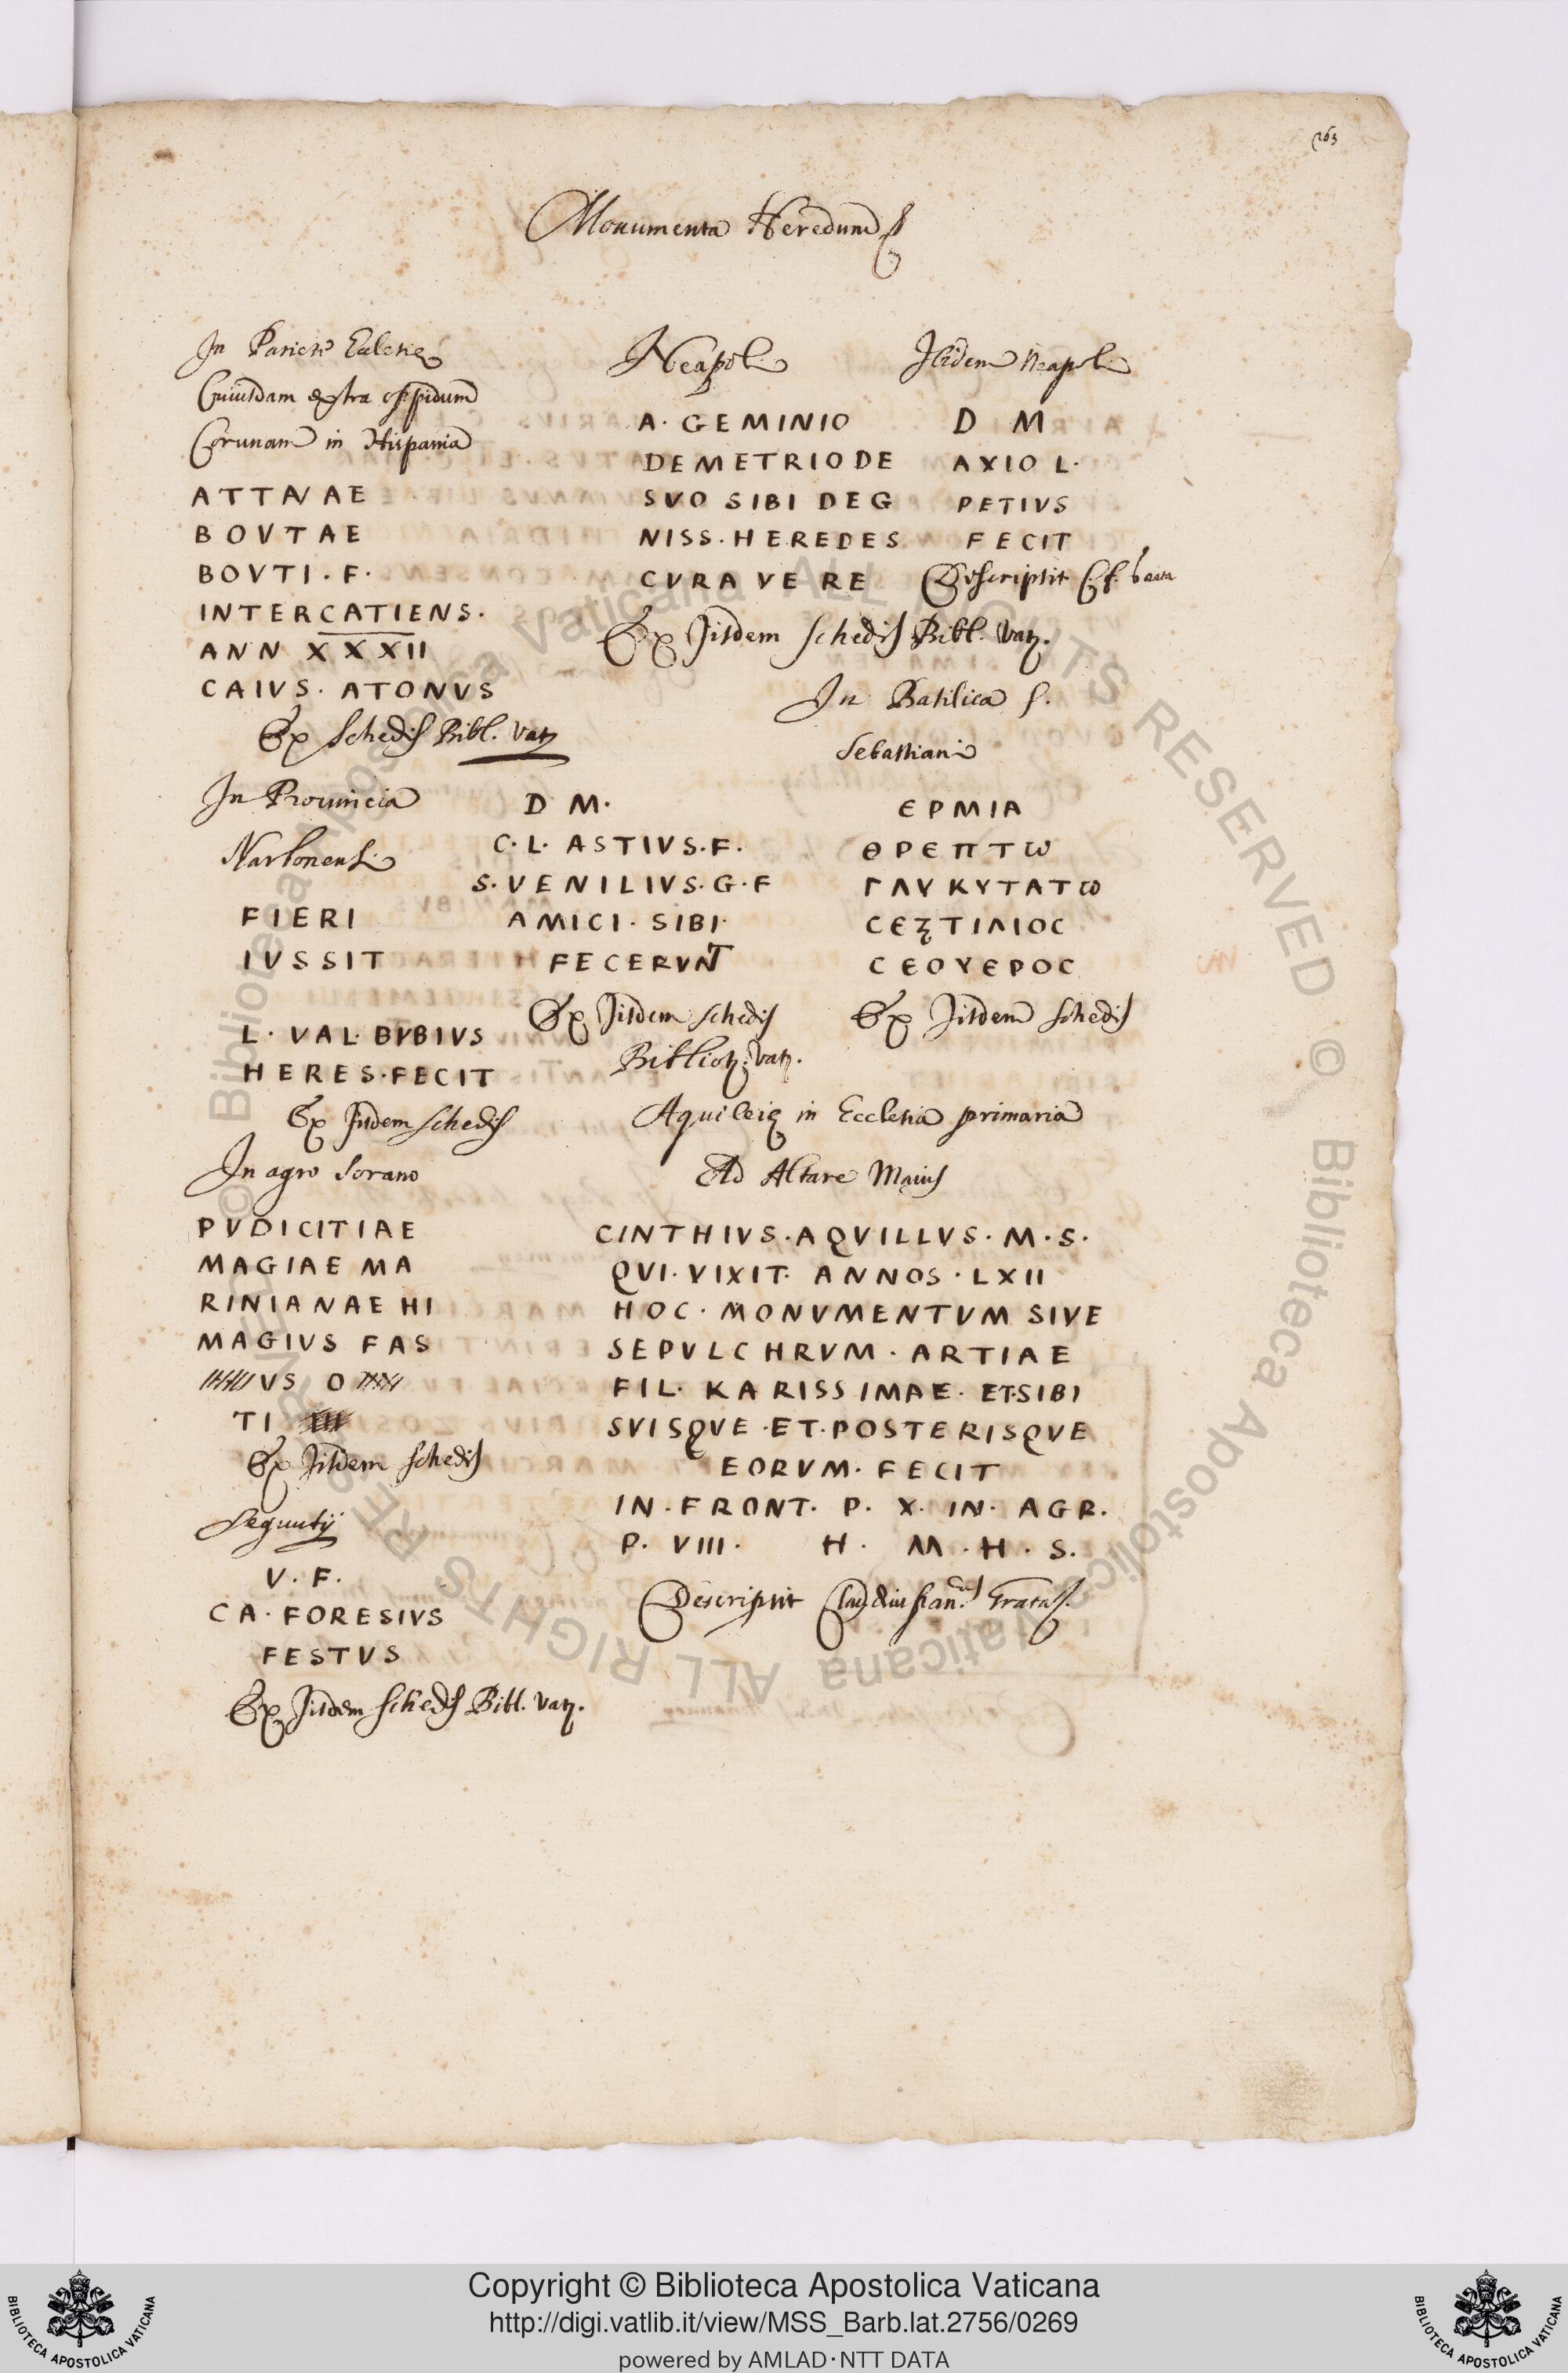 263
Monumenta Heredum
In Pariete Eclesię
Cuiusdam extra oppidum
Corunam in Hispania
ATTNAE
BOVTAE
BOVTI . F.
INTERCATIENS.
ANN XXXII
CAIVS. ATONVS
Ex Schedis Bibl. Vat.
In Prouincia
Narbonensi
FIERI
IVSSIT
L. VAL. BVBIVS
HERES.FECIT
Ex Iisdem schedis
In agro Sorano
PVDICITIAE
MAGIAE MA
RINIANAE HI
MAGIVS FAS
VS O
TI
Ex Iisdem schedis
Seguntij
V. F.
CA. FORESIVS
FESTVS
Ex Iisdem schedis Bibl. Vat.
Neapoli
A. GEMINIO
DEMETRIODE
SVO SIBI DEG
NISS. HEREDES
CVRAVERE
Ibidem Neapoli
D M
AXIO L.
PETIVS
FECIT
Descripsit
Ex Iisdem schedis Bibl. Vat.
D M.
C. L. ASTIVS. F.
S. VENILIVS. G. F
AMICI. SIBI.
FECERVNT
Ex Iisdem schedis
Biblioth. Vat.
In Basilica S.
Sebastiani
ЄΡΜΙΑ
ΘΡЄΠΤω
ΓΛΥΚΥΤΑΤω
CЄξΤΙΛΙΟC
CЄΟΥЄΡΟC
Ex Iisdem schedis
Aquileię in Ecclesia primaria
Ad Altare Maius
CINTHIVS. AQVILLVS. M. S.
QVI. VIXIT. ANNOS. LXII
HOC. MONVMENTVM SIVE
SEPVLCHRVM. ARTIAE
FIL. KARISSIMAE. ET.SIBI
SVISQVE.ET.POSTERISQVE
EORVM. FECIT
IN. FRONT. P. X. IN. AGR.
P. VIII. H. M. H. S.
Descripsit
© Biblioteca Apostolica Vaticana ALL RIGHTS RESERVED © Biblioteca Apostolica Vaticana ALL RIGHTS RESERVED
Copyright © Biblioteca Apostolica Vaticana
http://digi.vatlib.it/view/MSS_Barb.lat.2756/0269
powered by AMLAD·NTT DATA
BIBLIOTECA APOSTOLICA VATICANA
BIBLIOTECA APOSTOLICA VATICANA